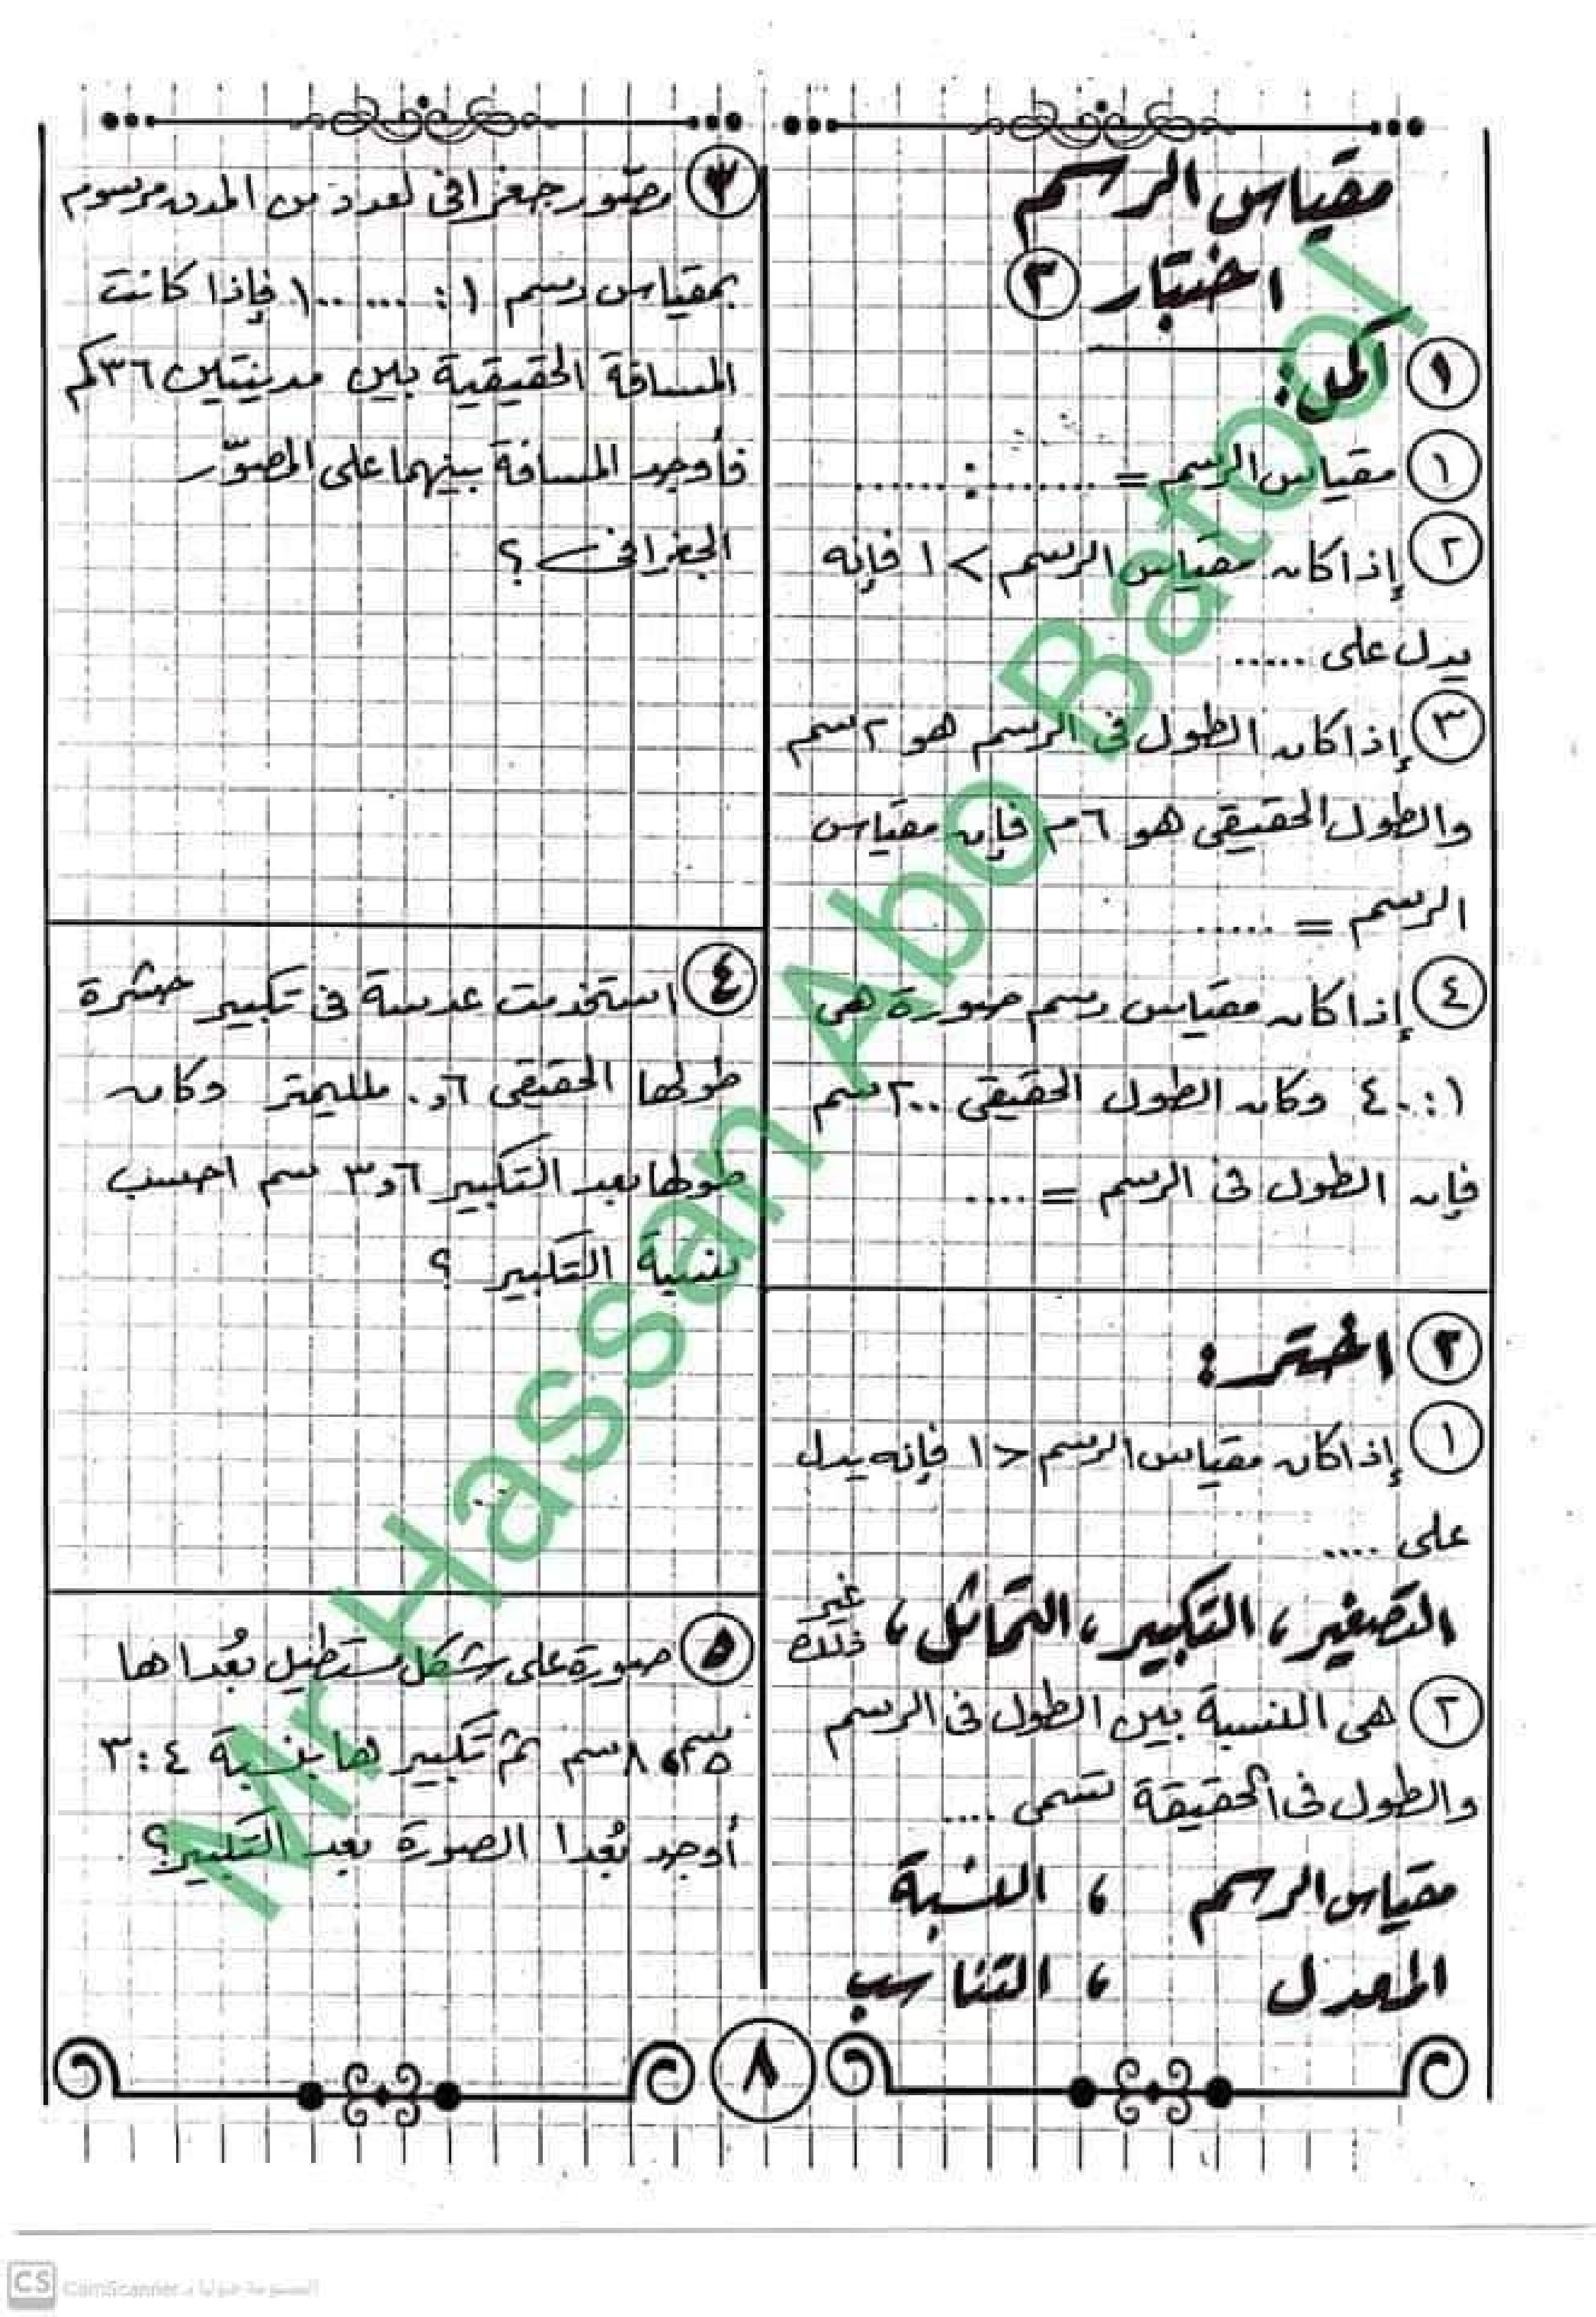 مقياس الرسم
اختبار ٢
١ أكمل:
١ مقياس الرسم = ........ : ........
٢ إذا كان مقياس الرسم > ١ فإنه
يدل على .....
٣ إذا كان الطول فى الرسم هو ٢ سم
والطول الحقيقى هو ٦ م فإن مقياس
الرسم = .....
٤ إذا كان مقياس رسم صورة هى
١ : ٤٠٠ وكان الطول الحقيقى ٢٠٠ سم
فإن الطول فى الرسم = ....
٢ اختر :
١ إذا كان مقياس الرسم < ١ فإنه يدل
على ....
التصغير ، التكبير ، التماثل ، غير ذلك
٢ هى النسبة بين الطول فى الرسم
والطول فى الحقيقة تسمى ....
مقياس الرسم ، النسبة
المعدل ، التناسب
٣ مصّور جغرافى لعدد من المدن مرسوم
بمقياس رسم ١ :
فإذا كانت
المسافة الحقيقية بين مدينتين ٣٦ كم
فأوجد المسافة بينهما على المصوّر
الجغرافى ؟
٤ استخدمت عدسة فى تكبير حشرة
طولها الحقيقى ٠,٦ ملليمتر وكان
طولها بعد التكبير ٣,٦ سم احسب
نسبة التكبير ؟
٥ صورة على شكل مستطيل بُعداها
٥ سم ، ٨ سم تم تكبيرها بنسبة ٤ : ٣
أوجد بُعدا الصورة بعد التكبير؟
٨
Mr Hassan Abo Batool
CS CamScanner الممسوحة ضوئيا بـ